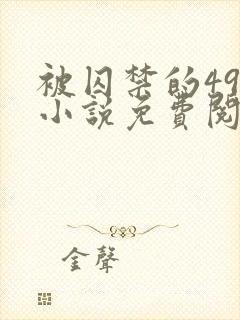 被囚禁的49
小說免費閱
金聲